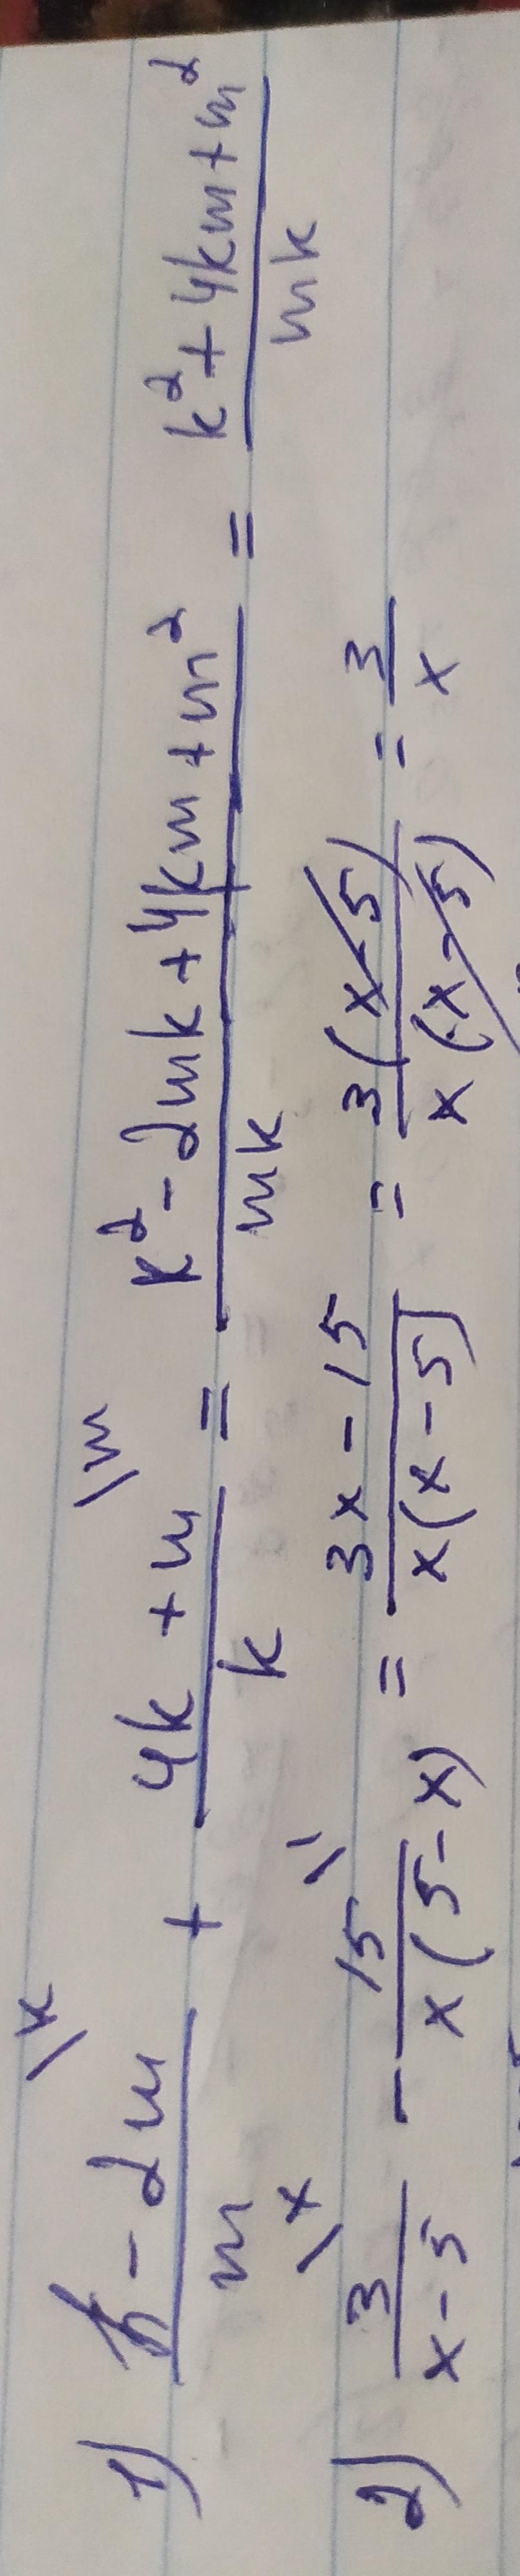 1) (k - 2m)/m \k + (4k + m)/k \m = (k² - 2mk + 4km + m²)/mk = (k² + 4km + m²)/mk
2) 3/(x - 5) \x - 15/(x(5 - x)) \1 = (3x - 15)/(x(x - 5)) = 3(x - 5)/(x(x - 5)) = 3/x